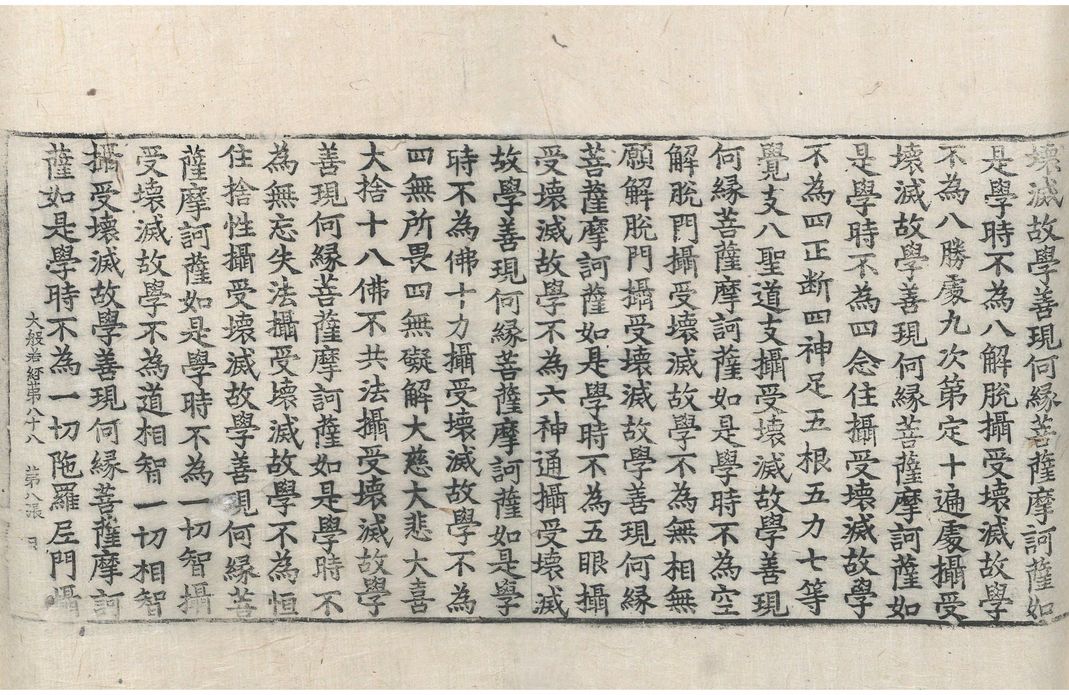 壊滅故學善現何縁菩薩摩訶薩如
是學時不為八解脫攝受壞滅故學
不為八勝處九次第定十遍處攝受
壞滅故學善現何縁菩薩摩訶薩如
是學時不為四念住攝受壞滅故學
不為四正断四神足五根五力七等
覺支八聖道支攝受壞滅故學善現
何縁菩薩摩訶薩如是學時不為空
解脫門攝受壞滅故學不為無相無
願解脫門攝受壞滅故學善現何縁
菩薩摩訶薩如是學時不為五眼攝
受壞滅故學不為六神通攝受壞滅
故學善現何縁菩薩摩訶薩如是學
時不為佛十力攝受壞滅故學不為
四無所畏四無礙解大慈大悲大喜
大捨十八佛不共法攝受壞滅故學
善現何縁菩薩摩訶薩如是學時不
為無忘失法攝受壞滅故學不為恒
住捨性攝受壞滅故學善現何縁菩
薩摩訶薩如是學時不為一切智攝
受壞滅故學不為道相智一切相智
攝受壞滅故學善現何縁菩薩摩訶
薩如是學時不為一切陁羅尼門攝
大般若經第八十八 第八張